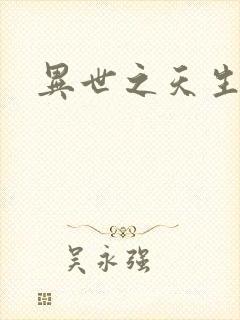 異世之天生
吴永强